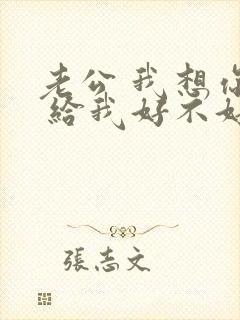 老公 我想你
給我好不好
張志文